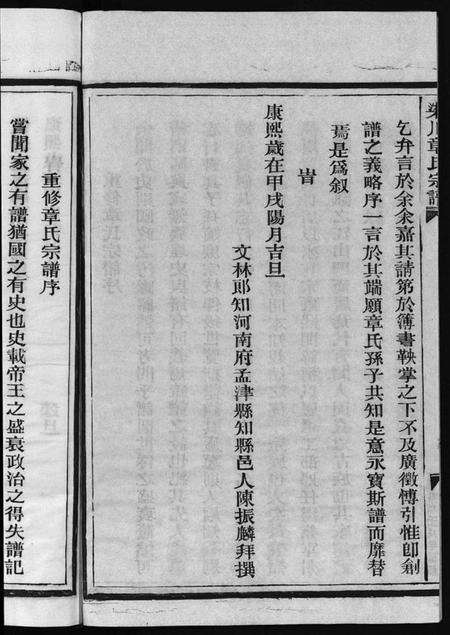 章氏宗譜
乞弁言於余余嘉其請第於簿書鞅掌之下不及廣徵博引惟卽創
譜之義略序一言於其端願章氏孫子共知是意永寶斯譜而靡替
焉是爲叙
旹
康熙歲在甲戌陽月吉旦
文林郎知河南府孟津縣知縣邑人陳振麟拜撰
重修章氏宗譜序
嘗聞家之有譜猶國之有史也史載帝王之盛衰政治之得失譜記